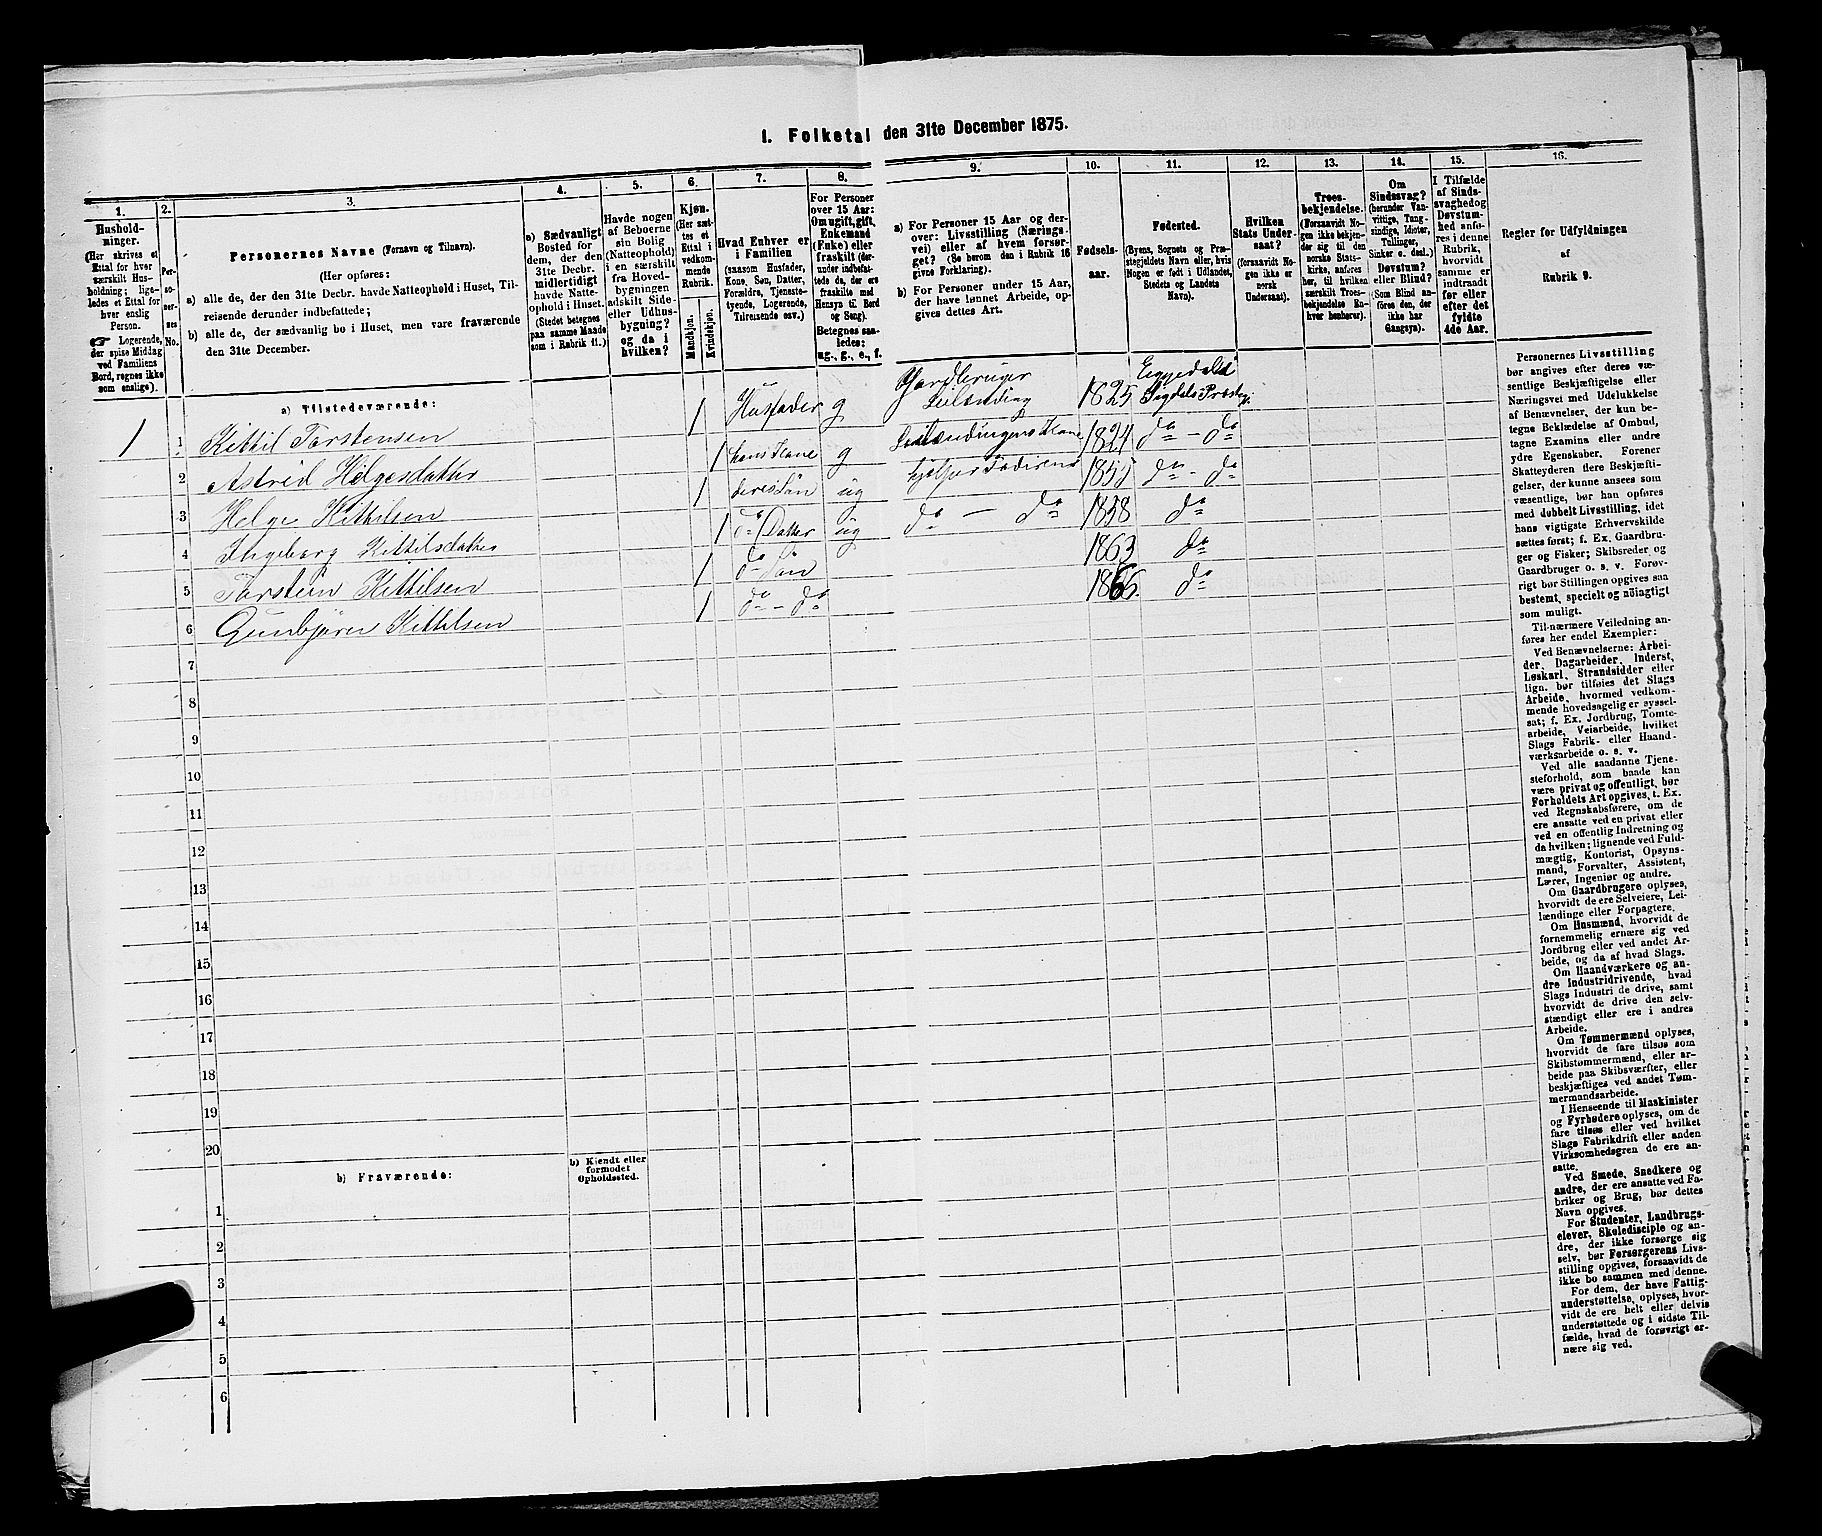 I. Folketal den 31te December 1875.
1. 2. 3. 4. 5. 6. 7. 8. 9. 10. 11. 12. 13. 14. 15. 16.
Hushold-
ninger.
(Her skrives et
Ettal for hver
særskilt Hus-
holdning; lige-
ledes et Ettal for
hver enslig
Person.
☞ Logerende,
der spise Middag
ved Familiens
Bord, regnes ikke
som enslige).
Per-
so-
ner-
nes
No.
Personernes Navne (Fornavn og Tilnavn).
(Her opføres:
a) alle de, der den 31te Decbr. havde Natteophold i Huset, Til-
reisende derunder indbefattede;
b) alle de, der sædvanlig bo i Huset, men vare fraværende
den 31te December.
a) Sædvanligt
Bosted for
dem, der den
31te Decbr.
midlertidigt
havde Natte-
ophold i Huset.
(Stedet betegnes
paa samme Maade
som i Rubrik 11.)
Havde nogen
af Beboerne
sin Bolig
(Natteophold)
i en særskilt
fra Hoved-
bygningen
adskilt Side-
eller Udhus-
bygning?
og da i
hvilken?
Kjøn.
(Her sæt-
tes et
Ettal i
vedkom-
mende
Rubrik.
Mandkjøn.
Kvindekjøn.
Hvad Enhver er
i Familien
(saasom Husfader,
Kone, Søn, Datter,
Forældre, Tjeneste-
tyende, Logerende,
Tilreisende osv.)
For Personer
over 15 Aar:
Om ugift, gift,
Enkemand
(Enke) eller
fraskilt (der-
under indbefat-
tede da, der ere
fraskilte med
Hensyn til Bord
og Seng).
Betegnes saa-
ledes:
ug., g., e., f.
a) For Personer 15 Aar og der-
over: Livsstilling (Nærings-
vei) eller af hvem forsør-
get? (Se herom den i Rubrik 16
givne Forklaring).
b) For Personer under 15 Aar,
der have lønnet Arbeide, op-
gives dettes Art.
Fødsels-
aar.
Fødested.
(Byens, Sognets og Præ-
stegjeldets Navn eller, hvis
Nogen er født i Udlandet,
Stedets og Landets
Navn).
Hvilken
Stats Under-
saat?
(forsaavidt No-
gen ikke er
norsk
Undersaat).
Troes-
bekjendelse.
(Forsaavidt No-
gen ikke bekjen-
der sig til den
norske Stats-
kirke, anføres
her, til hvilken
særskilt Troes-
bekjendelse En-
hver henhører).
Om
Sindssvag?
(herunder Van-
vittige, Tung-
sindige, Idioter,
Tullinger,
Sinker o. desl.)
Døvstum?
eller Blind?
(Som Blind an-
føres den, der
ikke har
Gangsyn).
I Tilfælde
af Sinds-
svaghed og
Døvstum-
hed anfø-
res i denne
Rubrik,
hvorvidt
samme er
indtraadt
før eller
efter det
fyldte
4de Aar.
Regler for Udfyldningen
af
Rubrik 9.
a) Tilstedeværende:
1 1 Kittil Torstensen 1 Husfader g Gardbruger Leilænding 1825 Eggedals Sigdals Præstegj.
2 Astrid Helgesdatter 1 hans Kone g Leilændingens Kone 1824 do - do
3 Helge Kittilsen 1 deres Søn ug hjelper Faderen 1855 do - do
4 Ingeborg Kittilsdatter 1 do Datter ug do - do 1858 do
5 Torstein Kittilsen 1 do Søn 1863 do
6 Gunbjørn Kittilsen 1 do - do 1866. do
7
8
9
10
11
12
13
14
15
16
17
18
19
20
b) Fraværende:
b) Kjendt eller
formodet
Opholdssted.
1
2
3
4
5
6
Personernes Livsstilling
bør angives efter deres væ-
sentlige Beskjæftigelse eller
Næringsvei med Udelukkelse
af Benævnelser, der kun be-
tegne Beklædelse af Ombud,
tagne Examina eller andre
ydre Egenskaber. Forener
Skatteyderen flere Beskjæfti-
gelser, der kunne ansees som
væsentlige, bør han opføres
med dobbelt Livsstilling, idet
hans vigtigste Erhvervskilde
sættes først; f. Ex. Gaardbru-
ger og Fisker; Skibsreder og
Gaardbruger o. s. v. Forøv-
rigt bør Stillingen opgives saa
bestemt, specielt og nöiagtigt
som muligt.
Til nærmere Veiledning an-
føres her endel Exempler:
Ved Benævnelserne: Arbei-
der, Dagarbeider, Inderst,
Løskarl, Strandsidder eller
lign. bør tilføies det Slags
Arbeide, hvormed vedkom-
mende hovedsagelig er syssel-
sat; f. Ex. Jordbrug, Tomte-
arbeide, Veiarbeide, hvilket
Slags Fabrik- eller Haand-
værksarbeide o. s. v.
Ved alle saadanne Tjene-
steforhold, som baade kan
være privat og offentligt, bør
Forholdets Art opgives, t. Ex.
ved Regnskabsførere, om de
ere ansatte ved en privat eller
ved en offentlig Indretning og
da hvilken; lignende ved Fuld-
mægtig, Kontorist, Opsyns-
mand, Forvalter, Assistent,
Lærer, Ingeniør og andre.
Om Gaardbrugere oplyses,
hvorvidt de ere Selveiere, Lei-
lændinge eller Forpagtere.
Om Husmænd, hvorvidt de
fornemmelig ernære sig ved
Jordbrug eller ved andet Ar-
beide, og da af hvad Slags.
Om Haandværkere og an-
dre Industridrivende, hvad
Slags Industri de drive, samt
hvorvidt de drive den selv-
stændigt eller ere i andres
Arbeide.
Om Tømmermænd oplyses,
hvorvidt de fare tilsøs som
Skibstømmermænd, eller ar-
beide paa Skibsværfter, eller
beskjæftiges ved andet Tøm-
mermandsarbeide.
I Henseende til Maskinister
og Fyrbødere oplyses, om de
fare tilsøs eller ved hvilket
Slags Fabrikdrift eller anden
Virksomhedsgren de ere an-
satte.
Ved Smede, Snedkere og
andre, der ere ansatte ved Fa-
briker og Brug, bør dettes
Navn opgives.
For Studenter, Landbrugs-
elever, Skoledisciple og an-
dre, der ikke forsørge sig
selv, bør Forsørgerens Livs-
stilling opgives, forsaavidt de
ikke bo sammen med denne.
For dem, der have Fattig-
understøttelse, oplyses, hvor-
vidt de ere helt eller delvis
understøttede og i sidste Til-
fælde, hvad de forøvrigt er-
nære sig ved.